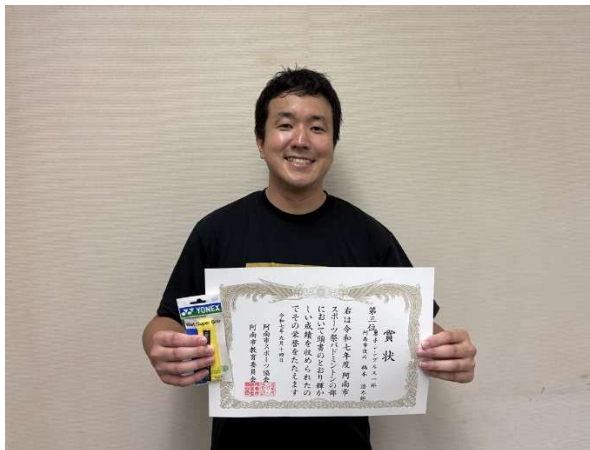 YONEX
Wet Super Grip
賞状
第三位
男子シングルス一部
阿南市役所
右は令和七年度 阿南市
スポーツ祭バドミントンの部
において頭書のとおり輝か
しい成績を収められたの
でその栄誉をたたえます
令和七年九月十四日
阿南市スポーツ協会
阿南市教育委員会